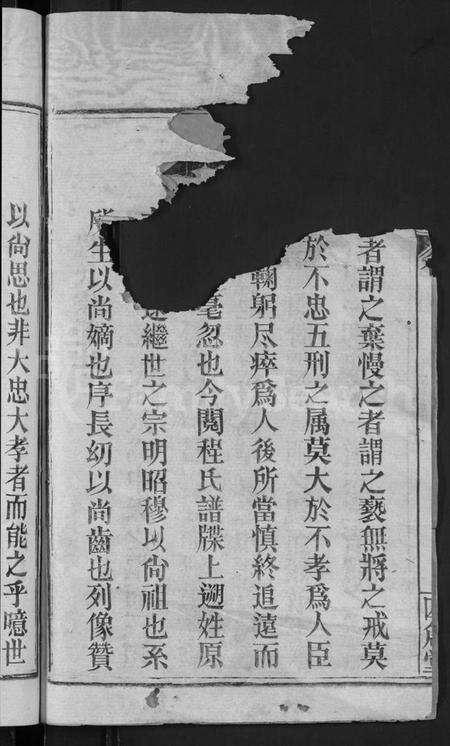 者謂之棄慢之者謂之褻無將之戒莫
於不忠五刑之属莫大於不孝爲人臣
鞠躬尽瘁爲人後所當慎終追遠而
毫忽也今閱程氏譜牒上遡姓原
繼世之宗明昭穆以尙祖也系
生以尙嫡也序長幼以尙齒也列像贊
以尙思也非大忠大孝者而能之乎噫世